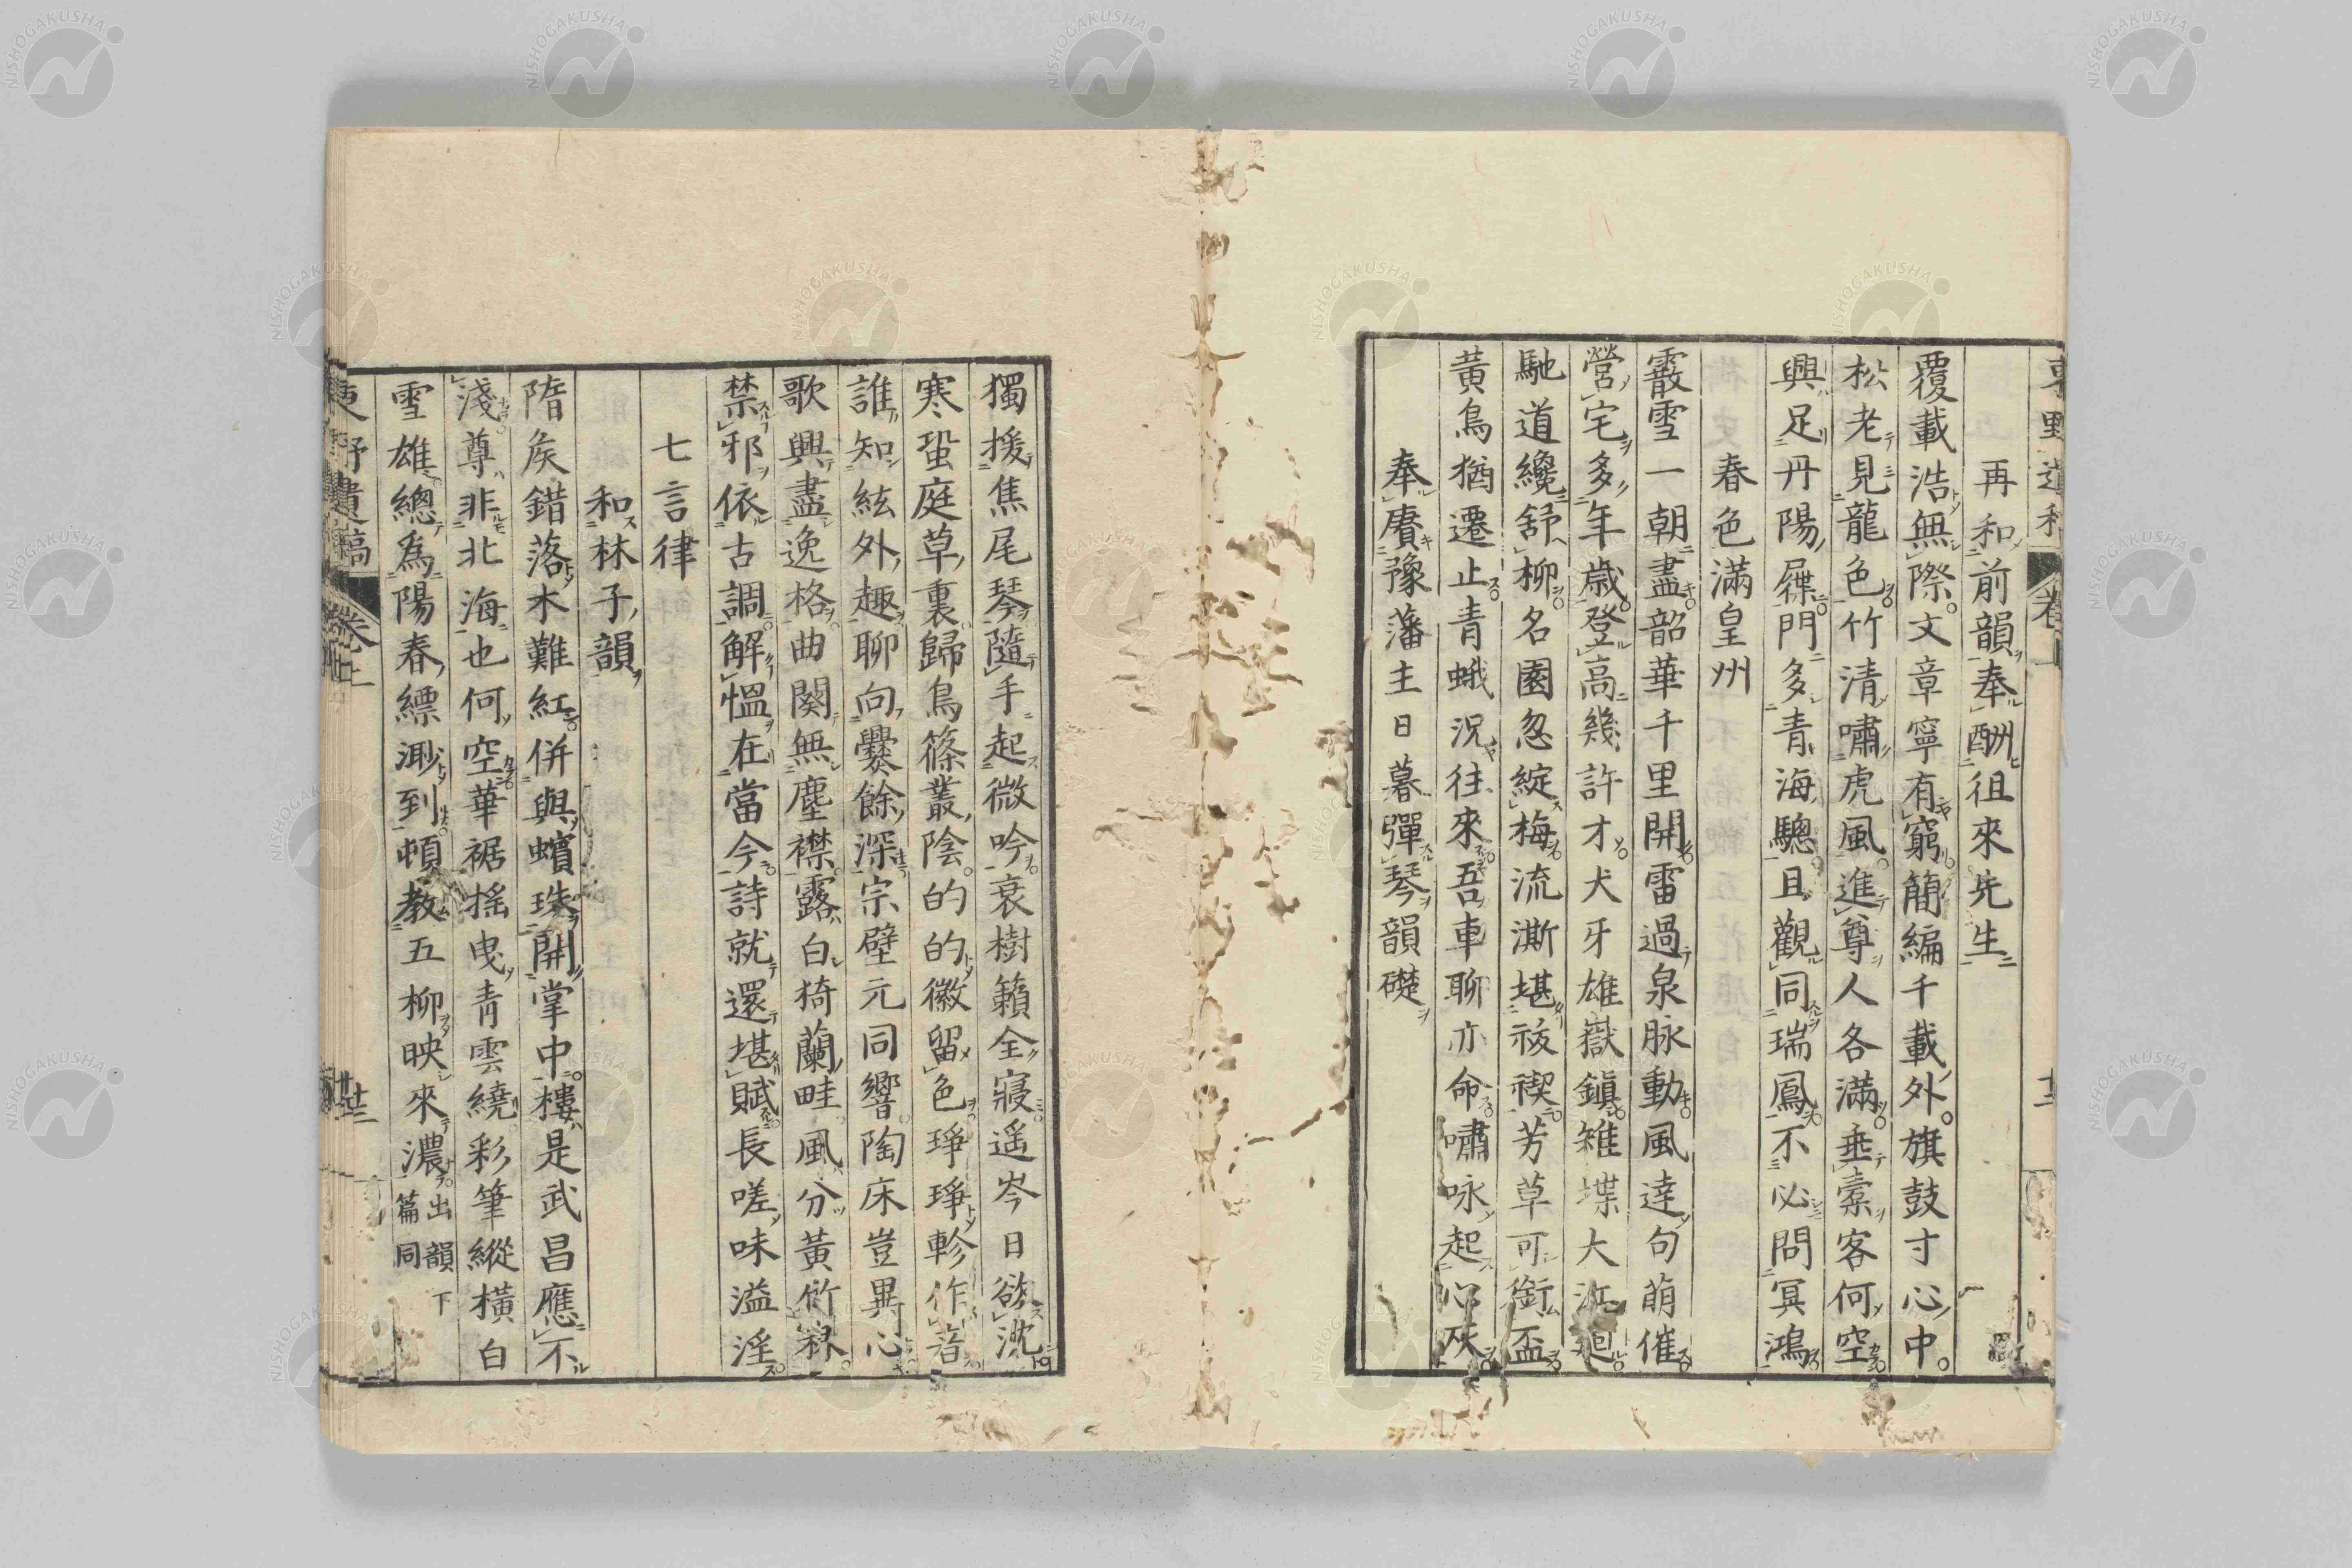 再和前韻奉酬徂來先生
覆載浩無際文章寧有窮簡編千載外旗鼓寸心中
松老見龍色竹清嘯虎風進尊人各滿垂槖客何空
興足丹陽屧門多青海驄且觀同瑞鳳不必問冥鴻
春色滿皇州
霰雪一朝盡韶華千里開雷過泉脉動風達句萌催
營宅多年歲登高幾許才犬牙雄嶽鎮雉堞大江廻
馳道纔舒柳名園忽綻梅流澌堪祓禊芳草可銜盃
黃鳥猶遷止青蛾況往來吾車聊亦命嘯咏起心灰
奉賡豫藩主日暮彈琴韻礎
獨援焦尾琴隨手起微吟衰樹籟全寢遥岑日欲沈
寒蛩庭草裏歸鳥篠叢陰的的徽留色琤琤軫作音
誰知絃外趣聊向爨餘深宗壁元同響陶床豈異心
歌興盡逸格曲闋無塵襟露白猗蘭畦風分黃竹林
禁邪依古調解慍在當今詩就還堪賦長嗟味溢淫
七言律
和林子韻
隋矦錯落木難紅併與蠙珠開掌中樓是武昌應不
淺尊非北海也何空華裾搖曳青雲繞彩筆縱橫白
雪雄總爲陽春縹渺到頓教五柳映來濃出韻下篇同
東野遺稿 卷上 廿三
NISHOGAKUSHA